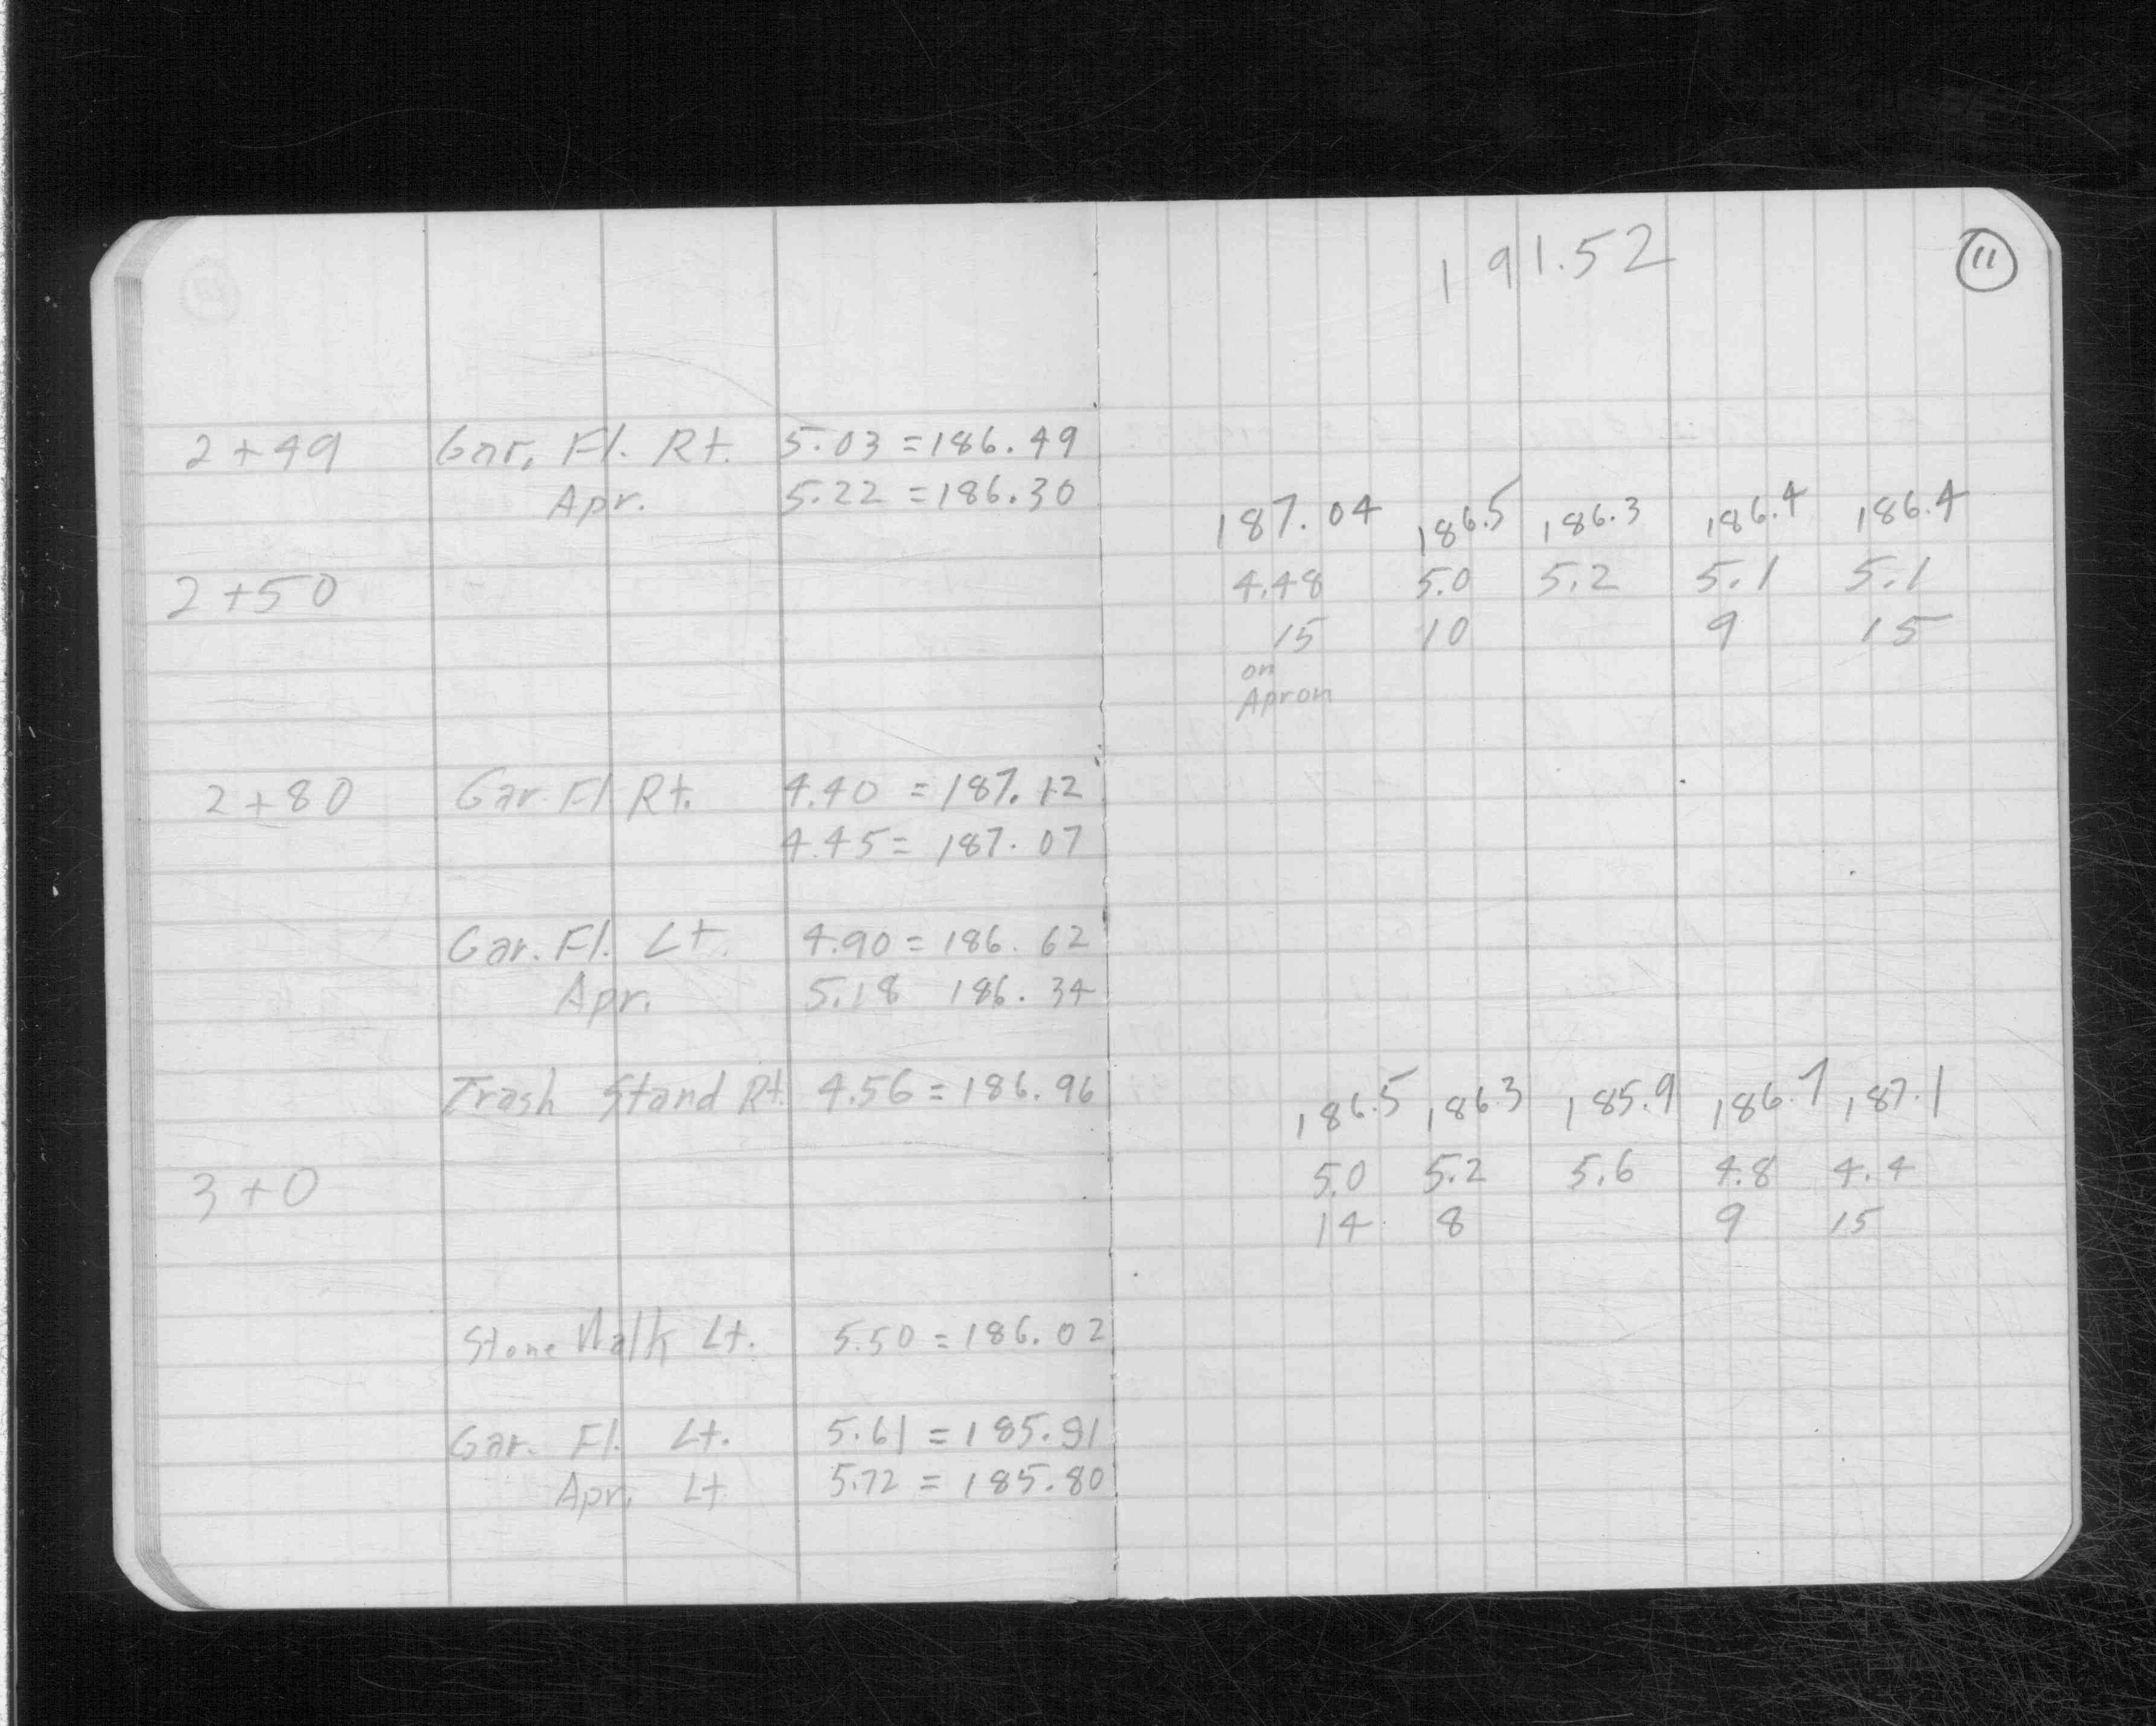 191.52
11
2+49 Gar. Fl. Rt. 5.03 = 186.49
Apr. 5.22 = 186.30
187.04 186.5 186.3 186.4 186.4
2+50 4.48 5.0 5.2 5.1 5.1
15 10 9 15
on
Apron
2+80 Gar. Fl Rt. 4.40 = 187.12
4.45 = 187.07
Gar. Fl. Lt. 4.90 = 186.62
Apr. 5.18 186.34
Trash Stand Rt. 4.56 = 186.96
186.5 186.3 185.9 186.7 187.1
3+0 5.0 5.2 5.6 4.8 4.4
14 8 9 15
Stone Walk Lt. 5.50 = 186.02
Gar. Fl. Lt. 5.61 = 185.91
Apr. Lt 5.72 = 185.80